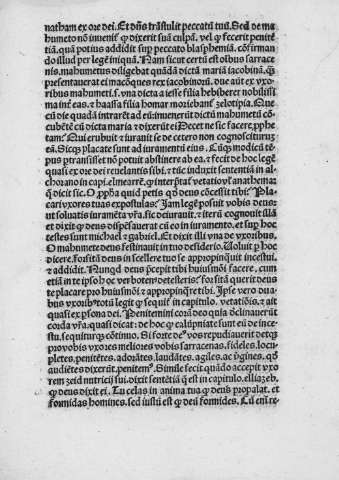 natham ex ore dei. Et dñs trãstulit peccatũ tuũ. Sed de ma
humeto nõ inuenis̃ ꝙ dixerit suã culpã. vel ꝙ fecerit penitẽ
tiã. qua potius addidit sup peccatũ blasphemiã. cõfirman
do illud per legẽ iniquã. Nam sicut certũ est oĩbus sarrace
nis. mahumetus diligebat quãdã dictã mariã iacobinã. quã
presentauerat ei macõques rex iacobinorũ. due aũt ex vxo
ribus mahumeti. s. vna dicta aiesse filia hebiberet nobilissi
ma inter eas. et haassa filia homar moriebant̃ zelotipia. Que
cũ die quadã intrarẽt ad eũ: inuenerũt dictũ mahumetũ cõ
cubẽtẽ cũ dicta maria. et dixerũt ei Decet ne sic facere, pphe
tam. Qui erubuit et iurauit se de cetero non cogniturum
eã. Sicqꝫ placate sunt ad iuramentũ eius. Cũqꝫ modicũ tẽ
pus ptransisset nõ potuit abstinere ab ea. et fecit de hoc legẽ
quasi ex ore dei reuelantis sibi. et tũc induxit sententiã in al
chorano in capi. elmearrẽ. qd̃ interptat̃ vetatiovl̃ anathema
qĩ dicit sic. O, ppha quid petis qd̃ deus cõcessit tibi: Pla
cari vxores tuas expostulas: Jam legẽ posuit vobis deus:
ut soluatis iuramẽta vr̃a. sic deiurauit. et iterũ cognouit illã
et dixit ꝙ deus dispẽsauerat cũ eo in iuramento. et sup hoc
testes sunt michael et gabriel. Et dixit illi vna de vxoribus.
O mahumete deus festinauit in tuo desiderio. Voluit p hoc
dicere. forsitã deus in scelere tuo se appropinquit incestui.
et addidit. Nunqd̃ deus pcepit tibi huiusmõi facere, cum
etiã in te ipso hoc verbo tenr̃ detesteris: forsitã querit deus
te placare pro huiusmõi et appropinqret tibi. Ipse vero dua
bus vxoribꝫ totũ legit qd̃ sequit̃ in capitulo. vetatiõis. et ait
quasi ex psona dei. Penitemini corã deo quia declinauerũt
corda vr̃a. quasi dicat: de hoc ꝙ calũpniate sunt eũ de ince-
stu. sequit̃urqꝫ cõtinuo. Si forte deꝰ vos repudiauerit detqꝫ
pro vobis vxores meliores vobis sarracenas. fideles. locu
pletes. penitẽtes. adorãtes. laudãtes. agiles. ac virgines. qd̃
audiẽtes dixerũt. penitemꝰ. Simile fecit quãdo accepit vxo
rem zeid nutricij sui. dixit sentẽtiã qd̃ est in capitulo. elliazeb.
ꝙ deus dixit ei. Tu celas in anima tua qd̃ deus propalat. et
formidas homines. sed iustũ est ꝙ deũ formides. Cũ eni re-